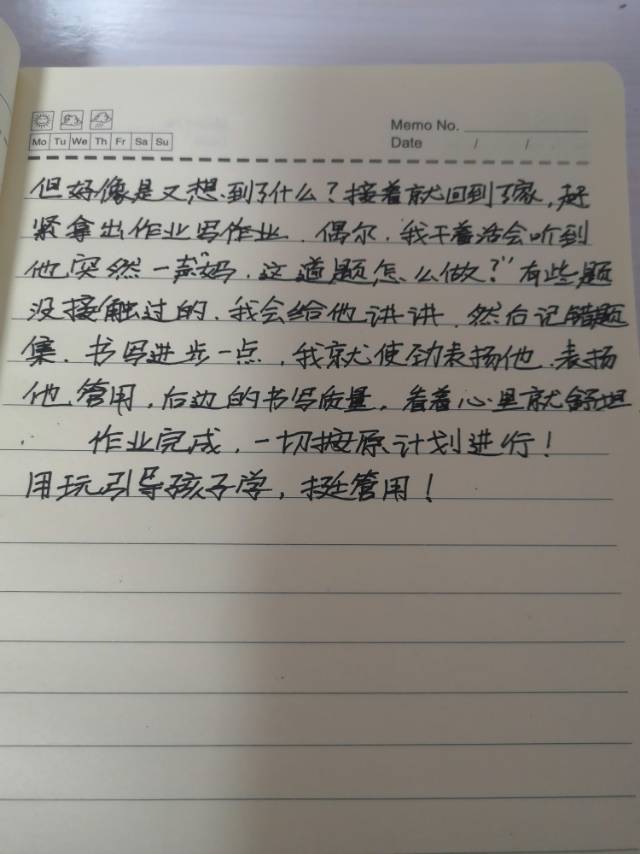 Memo No.
Mo Tu We Th Fr Sa Su
Date / /
但好像是又想到了什么？接着就回到了家，赶
紧拿出作业写作业．偶尔，我干着活会听到
他突然一声"妈，这道题怎么做？"有些题
没接触过的，我会给他讲讲，然后记错题
集．书写进步一点，我就使劲表扬他，表扬
他，管用，后边的书写质量，看着心里就舒坦
作业完成，一切按原计划进行！
用玩引导孩子学，挺管用！